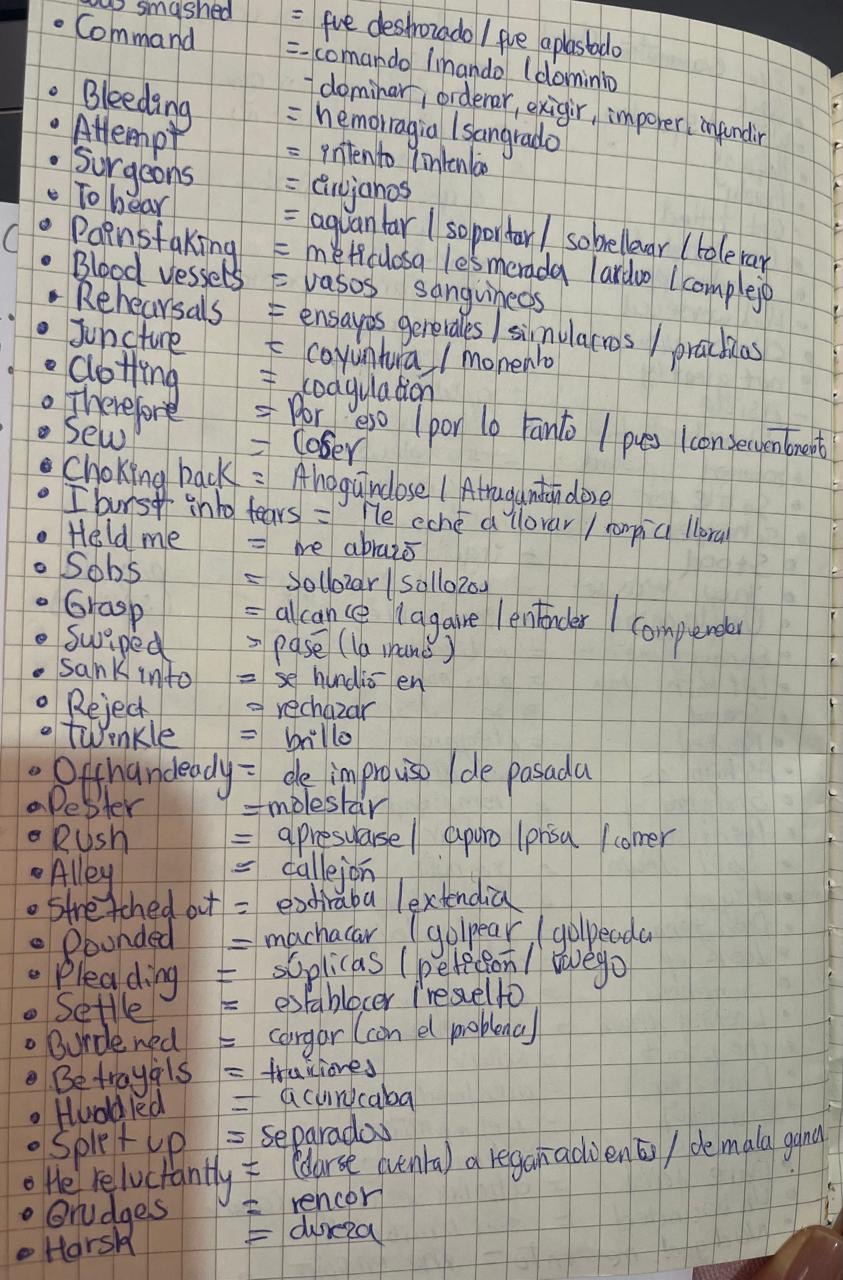 smashed = fue destrozado / fue aplastado
• Command =- comando / mando / dominio
- dominar, ordenar, exigir, imponer, infundir
• Bleeding = hemorragia / sangrado
• Attempt = intento / intenta
• Surgeons = cirujanos
• To bear = aguantar / soportar / sobrellevar / tolerar
• Painstaking = meticulosa / esmerada / arduo / complejo
• Blood vessets = vasos sanguineos
• Rehearsals = ensayos generales / simulacros / practicas
• Juncture = coyuntura / momento
• Clotting = coagulación
• Therefore = Por eso / por lo tanto / pues / consecuentement
• Sew = Coser
• Choking back = Ahogándose / Atragantándose
• I burst into tears = Me eché a llorar / rompí a llorar
• Held me = me abrazó
• Sobs = sollozar / sollozos
• Grasp = alcance / agarre / entender / comprender
• Swiped = pasé (la mano)
• Sank into = se hundió en
• Reject = rechazar
• Twinkle = brillo
• Offhandeady = de improviso / de pasada
• Pester = molestar
• Rush = apresurarse / apuro / prisa / correr
• Alley = callejón
• Stretched out = estiraba / extendía
• Pounded = machacar / golpear / golpeada
• Pleading = súplicas / petición / ruego
• Settle = establecer / resuelto
• Burdened = cargar (con el problema)
• Betrayals = traiciones
• Huddled = acurrucaba
• Split up = separados
• He reluctantly = (darse cuenta) a regañadientes / de mala gana
• Grudges = rencor
• Harsh = dureza